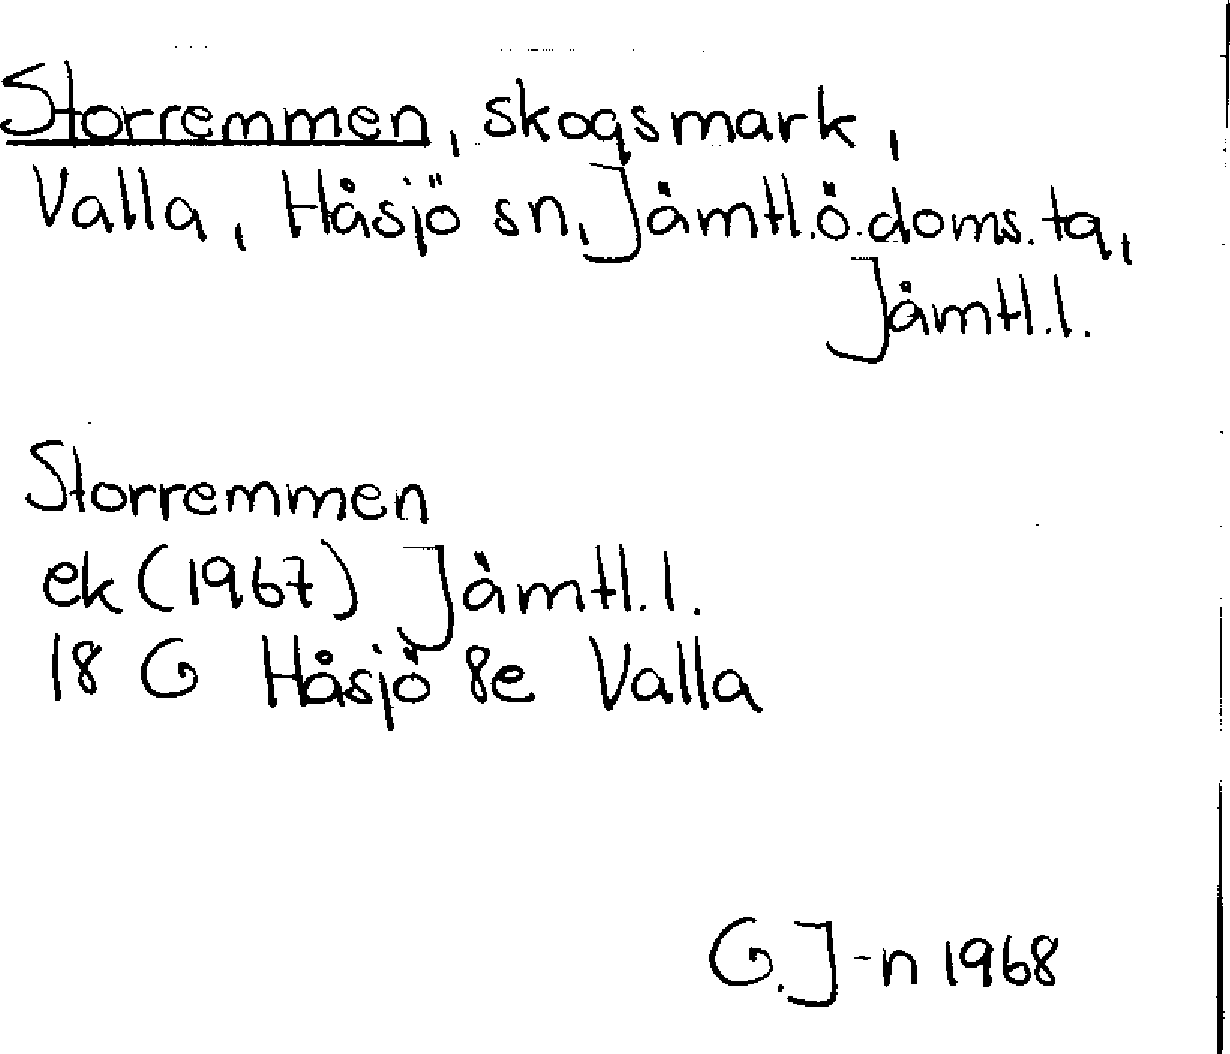 Storremmen, skogsmark,
Valla, Håsjö sn, Jämtl.ö.doms.tg,
Jämtl.l.
Storremmen
ek (1967) Jämtl.l.
18 G Håsjö 8e Valla
G.J-n 1968